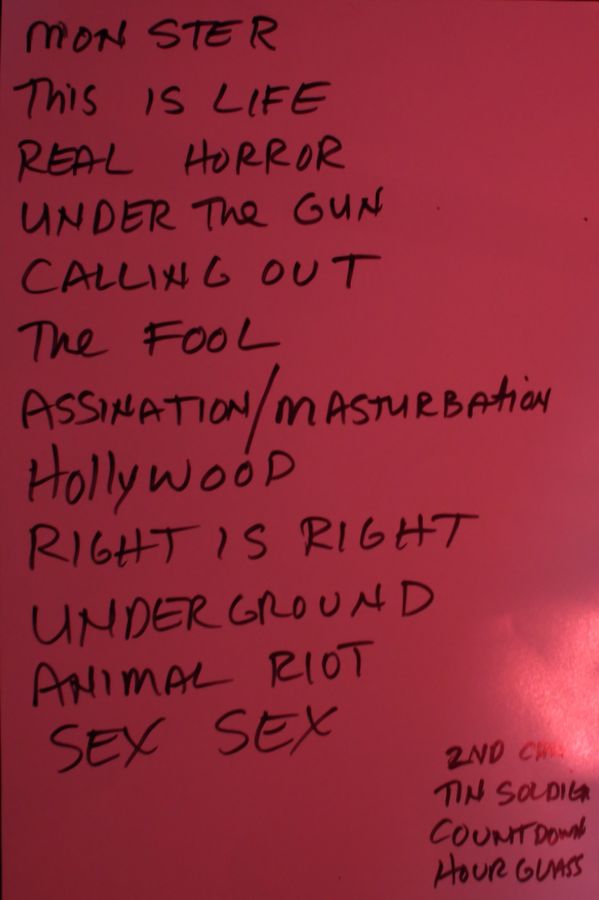 MONSTER
This IS LIFE
REAL HORROR
UNDER The GUN
CALLING OUT
The FOOL
ASSINATION/MASTURBATION
HOllyWOOD
RIGHT IS RIGHT
UNDERGROUND
ANIMAL RIOT
SEX SEX
2ND
TIN SOLDIER
COUNTDOWN
HOUR GLASS